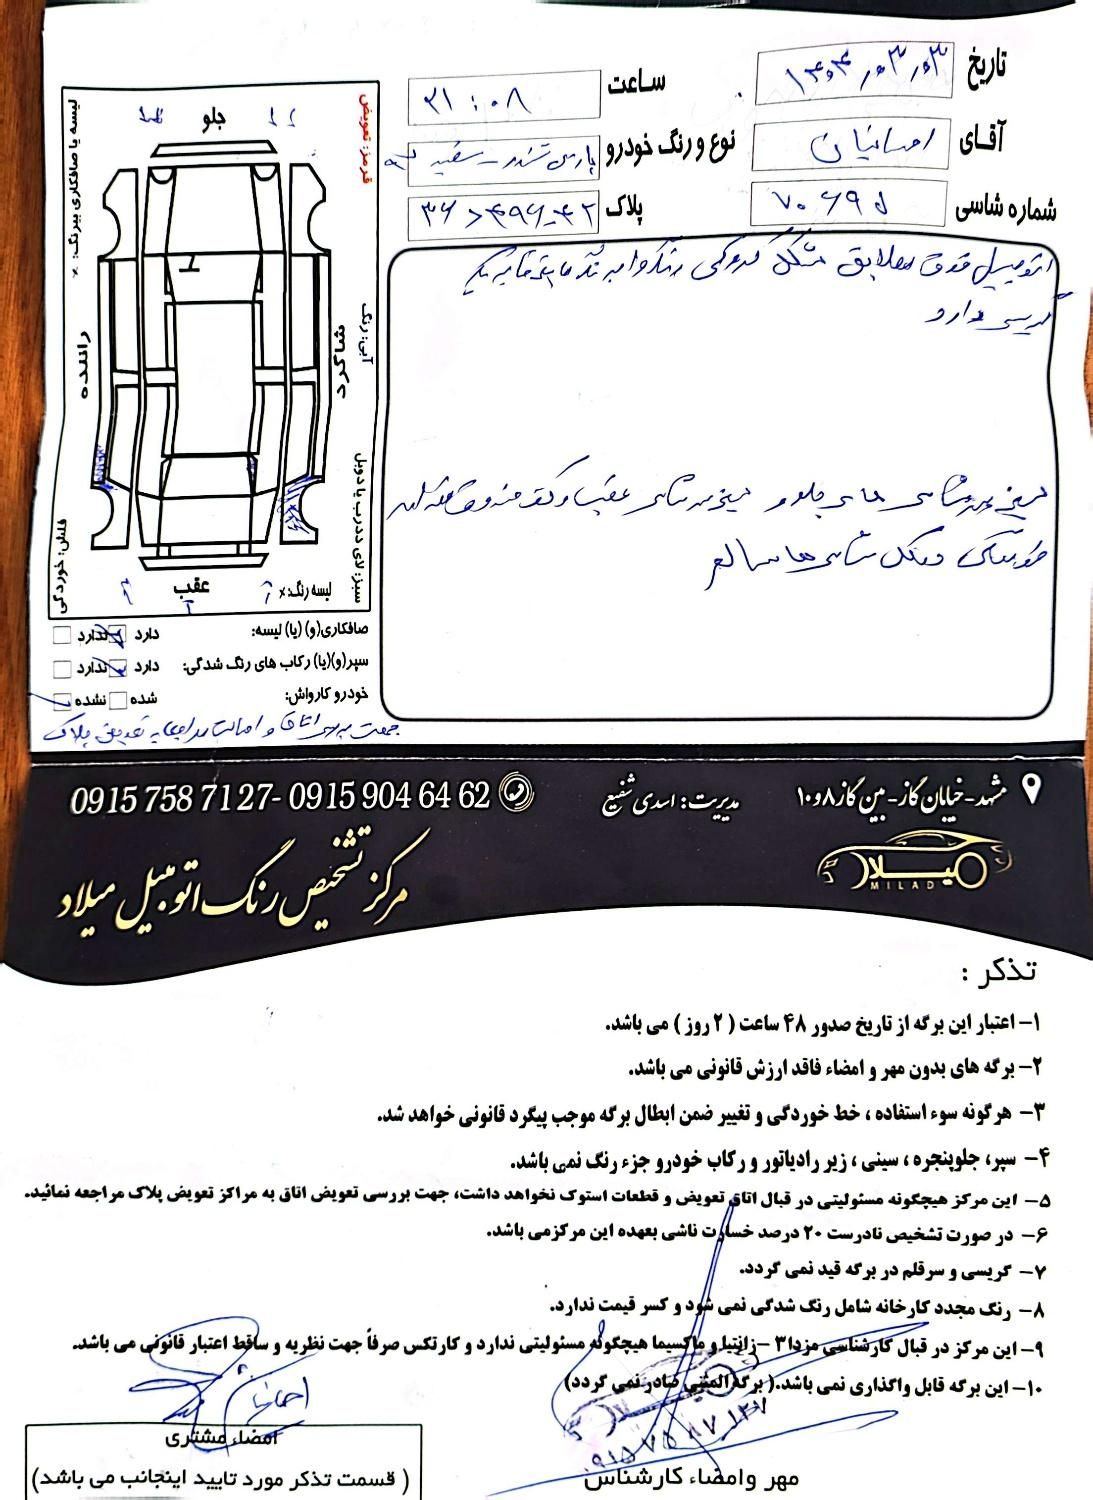 تاریخ
ساعت ۲۱:۰۸
آقای احسانیان
نوع و رنگ خودرو پارس تندر - سفید
شماره شاسی
پلاک
قرمز: تعویض
لیسه یا صافکاری بیرنگ: x
جلو
راننده
شاگرد
آبی: رنگ
سبز: لای ددرب یا دوبل
فلش: خوردگی
عقب
لیسه رنگ: x
اتومبیل فوق مطابق شکل
میخ
شاسی های جلو و
شاسی عقب و کف صندوق عقب
خوردگی
شاسی ها سالم
صافکاری(و) (یا) لیسه: دارد ندارد
سپر(و)(یا) رکاب های رنگ شدگی: دارد ندارد
خودرو کارواش: شده نشده
جهت بررسی اتاق و اصالت مراجعه به تعویض پلاک
مشهد-خیابان گاز-بین گاز ۸ و ۱۰
مدیریت: اسدی شفیع
0915 904 64 62 - 0915 758 71 27
میلاد
MILAD
مرکز تشخیص رنگ اتومبیل میلاد
تذکر :
۱- اعتبار این برگه از تاریخ صدور ۴۸ ساعت ( ۲ روز ) می باشد.
۲- برگه های بدون مهر و امضاء فاقد ارزش قانونی می باشد.
۳- هرگونه سوء استفاده ، خط خوردگی و تغییر ضمن ابطال برگه موجب پیگرد قانونی خواهد شد.
۴- سپر، جلوپنجره ، سینی ، زیر رادیاتور و رکاب خودرو جزء رنگ نمی باشد.
۵- این مرکز هیچگونه مسئولیتی در قبال اتاق تعویض و قطعات استوک نخواهد داشت، جهت بررسی تعویض اتاق به مراکز تعویض پلاک مراجعه نمائید.
۶- در صورت تشخیص نادرست ۲۰ درصد خسارت ناشی بعهده این مرکزمی باشد.
۷- گریسی و سرقلم در برگه قید نمی گردد.
۸- رنگ مجدد کارخانه شامل رنگ شدگی نمی شود و کسر قیمت ندارد.
۹- این مرکز در قبال کارشناسی مزدا۳ -زانتیا و ماکسیما هیچگونه مسئولیتی ندارد و کارتکس صرفاً جهت نظریه و ساقط اعتبار قانونی می باشد.
۱۰- این برگه قابل واگذاری نمی باشد.( برگه المثنی صادر نمی گردد)
امضاء مشتری
( قسمت تذکر مورد تایید اینجانب می باشد)
مهر وامضاء کارشناس